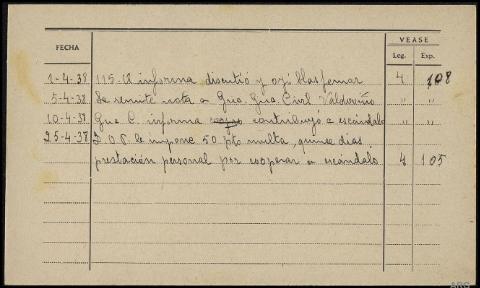 VEASE
FECHA Leg. Exp.
1-4-38 115.12 informa discutió y oyó blasfemar 4 108
5-4-38 Se remite nota a Gua. Civil Valdoviño " "
10-4-38 Gua C. informa contribuyó a escándalo " "
25-4-38 I. O. P. le impone 50 pts multa, quince dias
prestación personal por cooperar a escándalo 4 105